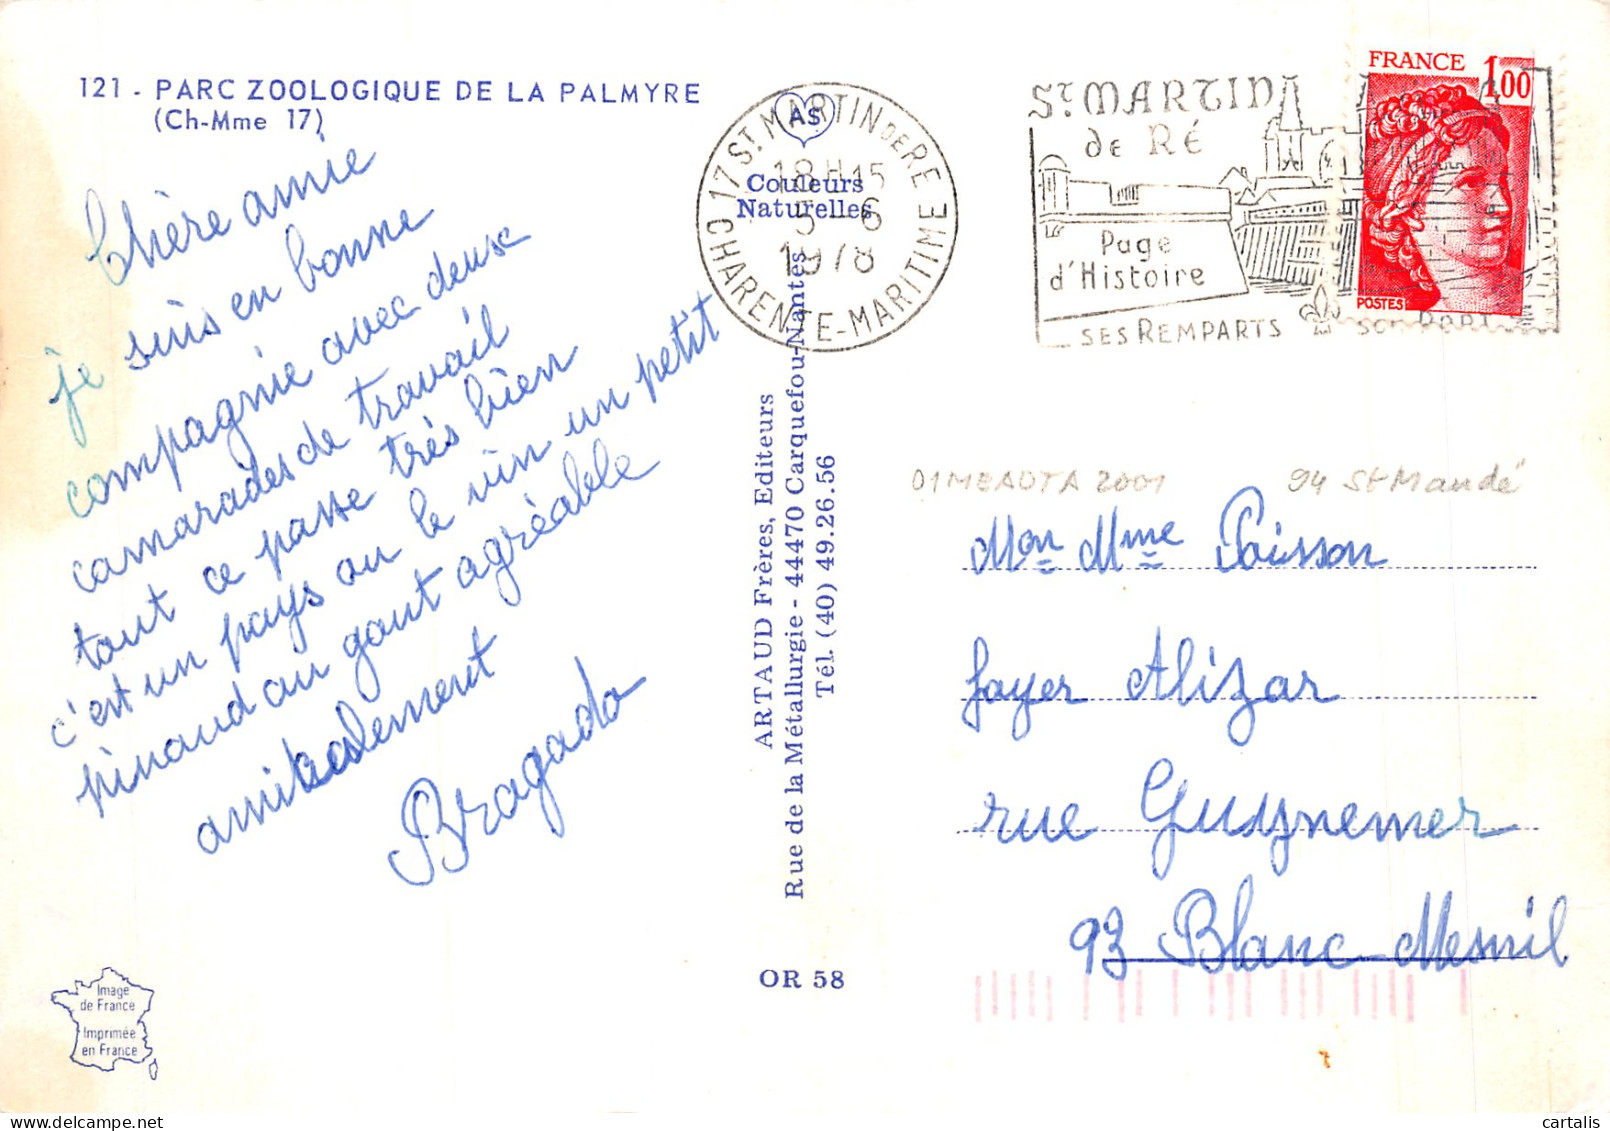 121 - PARC ZOOLOGIQUE DE LA PALMYRE
(Ch-Mme 17)
Chère amie
je suis en bonne
compagnie avec deuse
camarades de travail
tout ce passe très bien
c'est un pays ou le vin un petit
pinaud au gout agréable
amicalement
Bragado
Image
de France
Imprimée
en France
AS
Couleurs
Naturelles
ARTAUD Frères, Editeurs
Rue de la Métallurgie - 44470 Carquefou-Nantes
Tél. (40) 49.26.56
OR 58
17 ST MARTIN DE RE
18H15
5-6
1978
CHARENTE-MARITIME
St MARTIN
de RÉ
Page
d'Histoire
SES REMPARTS
SON PORT
FRANCE 1,00
POSTES
01MEAOTA 2001 94 St Mandé
Mon Mme Poisson
foyer Alizar
rue Guynemer
93 Blanc-Mesnil